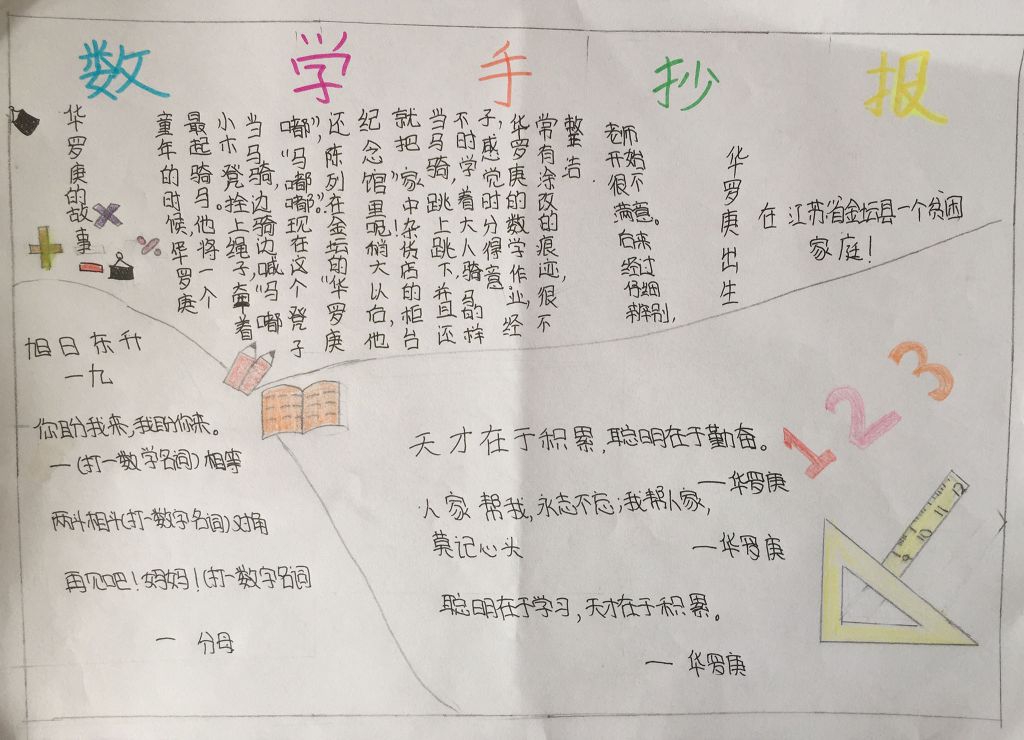 数学手抄报
华罗庚的故事
童年的时候,华罗庚
最起骑马。他将一个
小木凳拴上绳子,牵着
当马骑,边骑边喊“马嘟
嘟”,“马嘟嘟”。现在这个凳子
还陈列在金坛的“华罗庚
纪念馆里呃稍大以后,他
就把“家中!杂货店的柜台
当马骑,跳上跳下,并且还
不时学着大人骑马的样
子,感觉时分得意
华罗庚的数学作业,经
常有涂改的痕迹,很不
整洁
老师
开始
很不
满意。
后来
经过
仔细
辨别,
华罗庚出生
在江苏省金坛县一个贫困
家庭!
+ × - ÷
旭日东升
一九
你盼我来,我盼你来。
一(打一数学名词)相等
两牛相斗(打一数字名词)对角
再见吧!妈妈!(打一数字名词
一 分母
天才在于积累,聪明在于勤奋。
一华罗庚
人家帮我,永志不忘;我帮人家,
莫记心头
一华罗庚
聪明在于学习,天才在于积累。
一 华罗庚
1 2 3
9 10 11 12